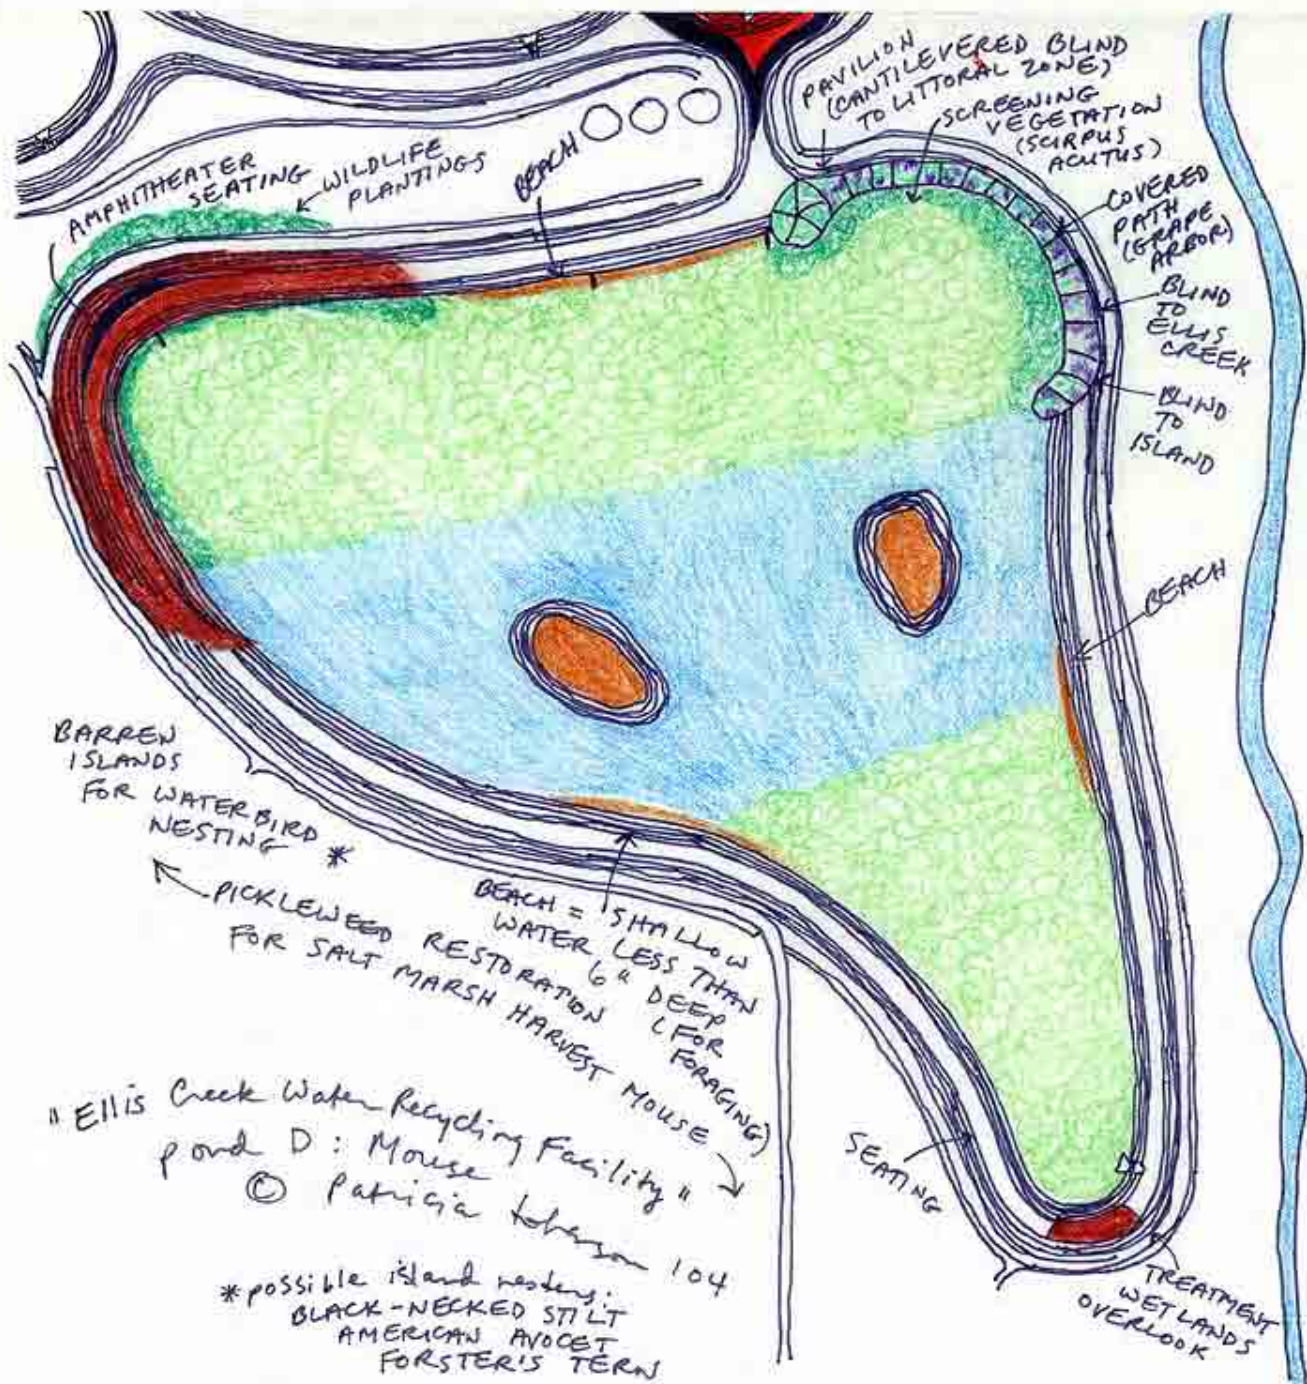 PAVILION
(CANTILEVERED BLIND
TO LITTORAL ZONE)
SCREENING
VEGETATION
(SCIRPUS
ACUTUS)
COVERED
PATH
(GRAPE
ARBOR)
BLIND
TO
ELLIS
CREEK
BLIND
TO
ISLAND
AMPHITHEATER
SEATING
WILDLIFE
PLANTINGS
BEACH
BEACH
BARREN
ISLANDS
FOR WATERBIRD *
NESTING
PICKLEWEED RESTORATION
FOR SALT MARSH HARVEST MOUSE
BEACH = SHALLOW
WATER LESS THAN
6" DEEP
(FOR
FORAGING)
SEATING
TREATMENT
WETLANDS
OVERLOOK
"Ellis Creek Water Recycling Facility"
pond D: Mouse
© Patricia Johanson '04
*possible island nesters:
BLACK-NECKED STILT
AMERICAN AVOCET
FORSTER'S TERN